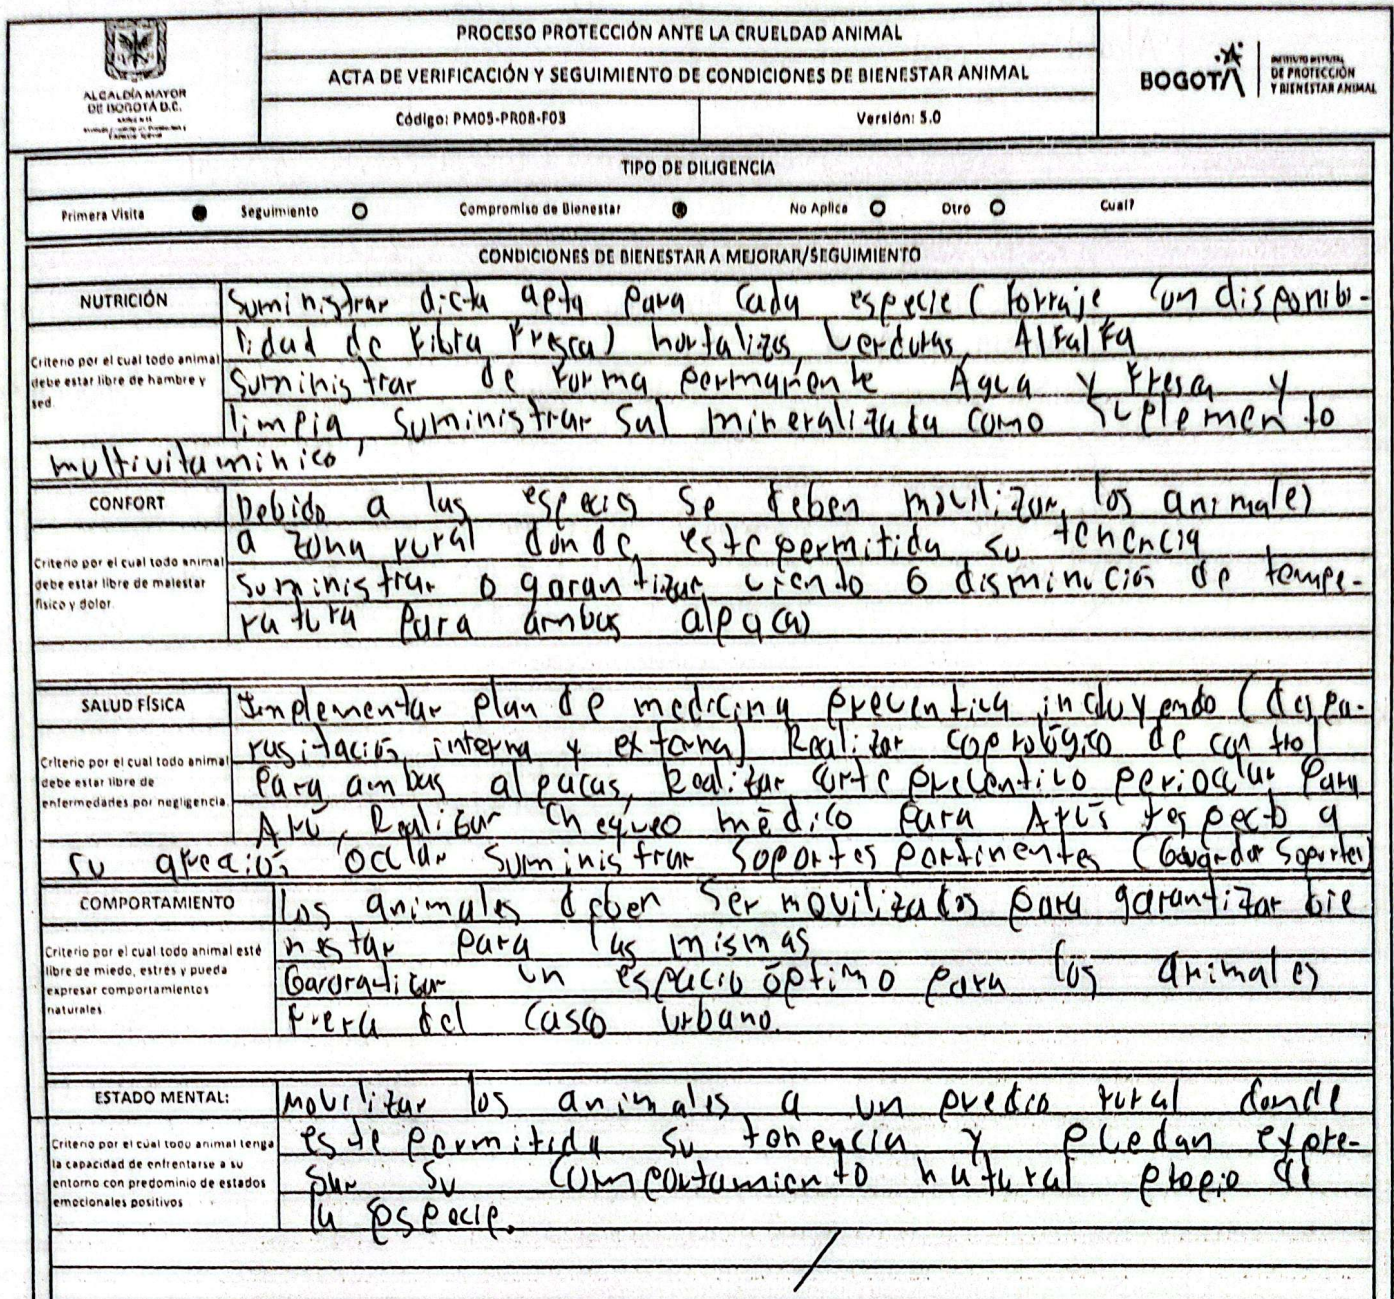 PROCESO PROTECCIÓN ANTE LA CRUELDAD ANIMAL
ACTA DE VERIFICACIÓN Y SEGUIMIENTO DE CONDICIONES DE BIENESTAR ANIMAL
Código: PM05-PR08-F03 Versión: 5.0
ALCALDÍA MAYOR
DE BOGOTÁ D.C.
BOGOTÁ
INSTITUTO DISTRITAL
DE PROTECCIÓN
Y BIENESTAR ANIMAL
TIPO DE DILIGENCIA
Primera Visita Seguimiento Compromiso de Bienestar No Aplica Otro Cual?
CONDICIONES DE BIENESTAR A MEJORAR/SEGUIMIENTO
NUTRICIÓN
Criterio por el cual todo animal
debe estar libre de hambre y
sed.
Suministrar dieta apta para cada especie (forraje con disponibi-
lidad de fibra fresca) hortalizas, verduras, Alfalfa
Suministrar de forma permanente Agua y fresca y
limpia, suministrar sal mineralizada como suplemento
multivitaminico
CONFORT
Criterio por el cual todo animal
debe estar libre de malestar
físico y dolor.
Debido a las especies se deben movilizar los animales
a zona rural donde este permitida su tenencia
suministrar o garantizar viento ó disminución de tempe-
ratura para ambas alpacas
SALUD FÍSICA
Criterio por el cual todo animal
debe estar libre de
enfermedades por negligencia.
Implementar plan de medicina preventiva incluyendo (despa-
rasitación interna y externa) Realizar coprológico de control
para ambas alpacas, Realizar corte preventivo periocular para
Realizar chequeo médico para respecto a
su ocular suministrar soportes pertinentes (Guardar Soportes)
COMPORTAMIENTO
Criterio por el cual todo animal esté
libre de miedo, estrés y pueda
expresar comportamientos
naturales.
Los animales deben ser movilizados para garantizar bie
nestar para las mismas
Garantizar un espacio óptimo para los animales
fuera del casco urbano.
ESTADO MENTAL:
Criterio por el cual todo animal tenga
la capacidad de enfrentarse a su
entorno con predominio de estados
emocionales positivos
Movilizar los animales a un predio rural donde
este permitida su tenencia y puedan expre-
sar su comportamiento natural propio de
la especie.